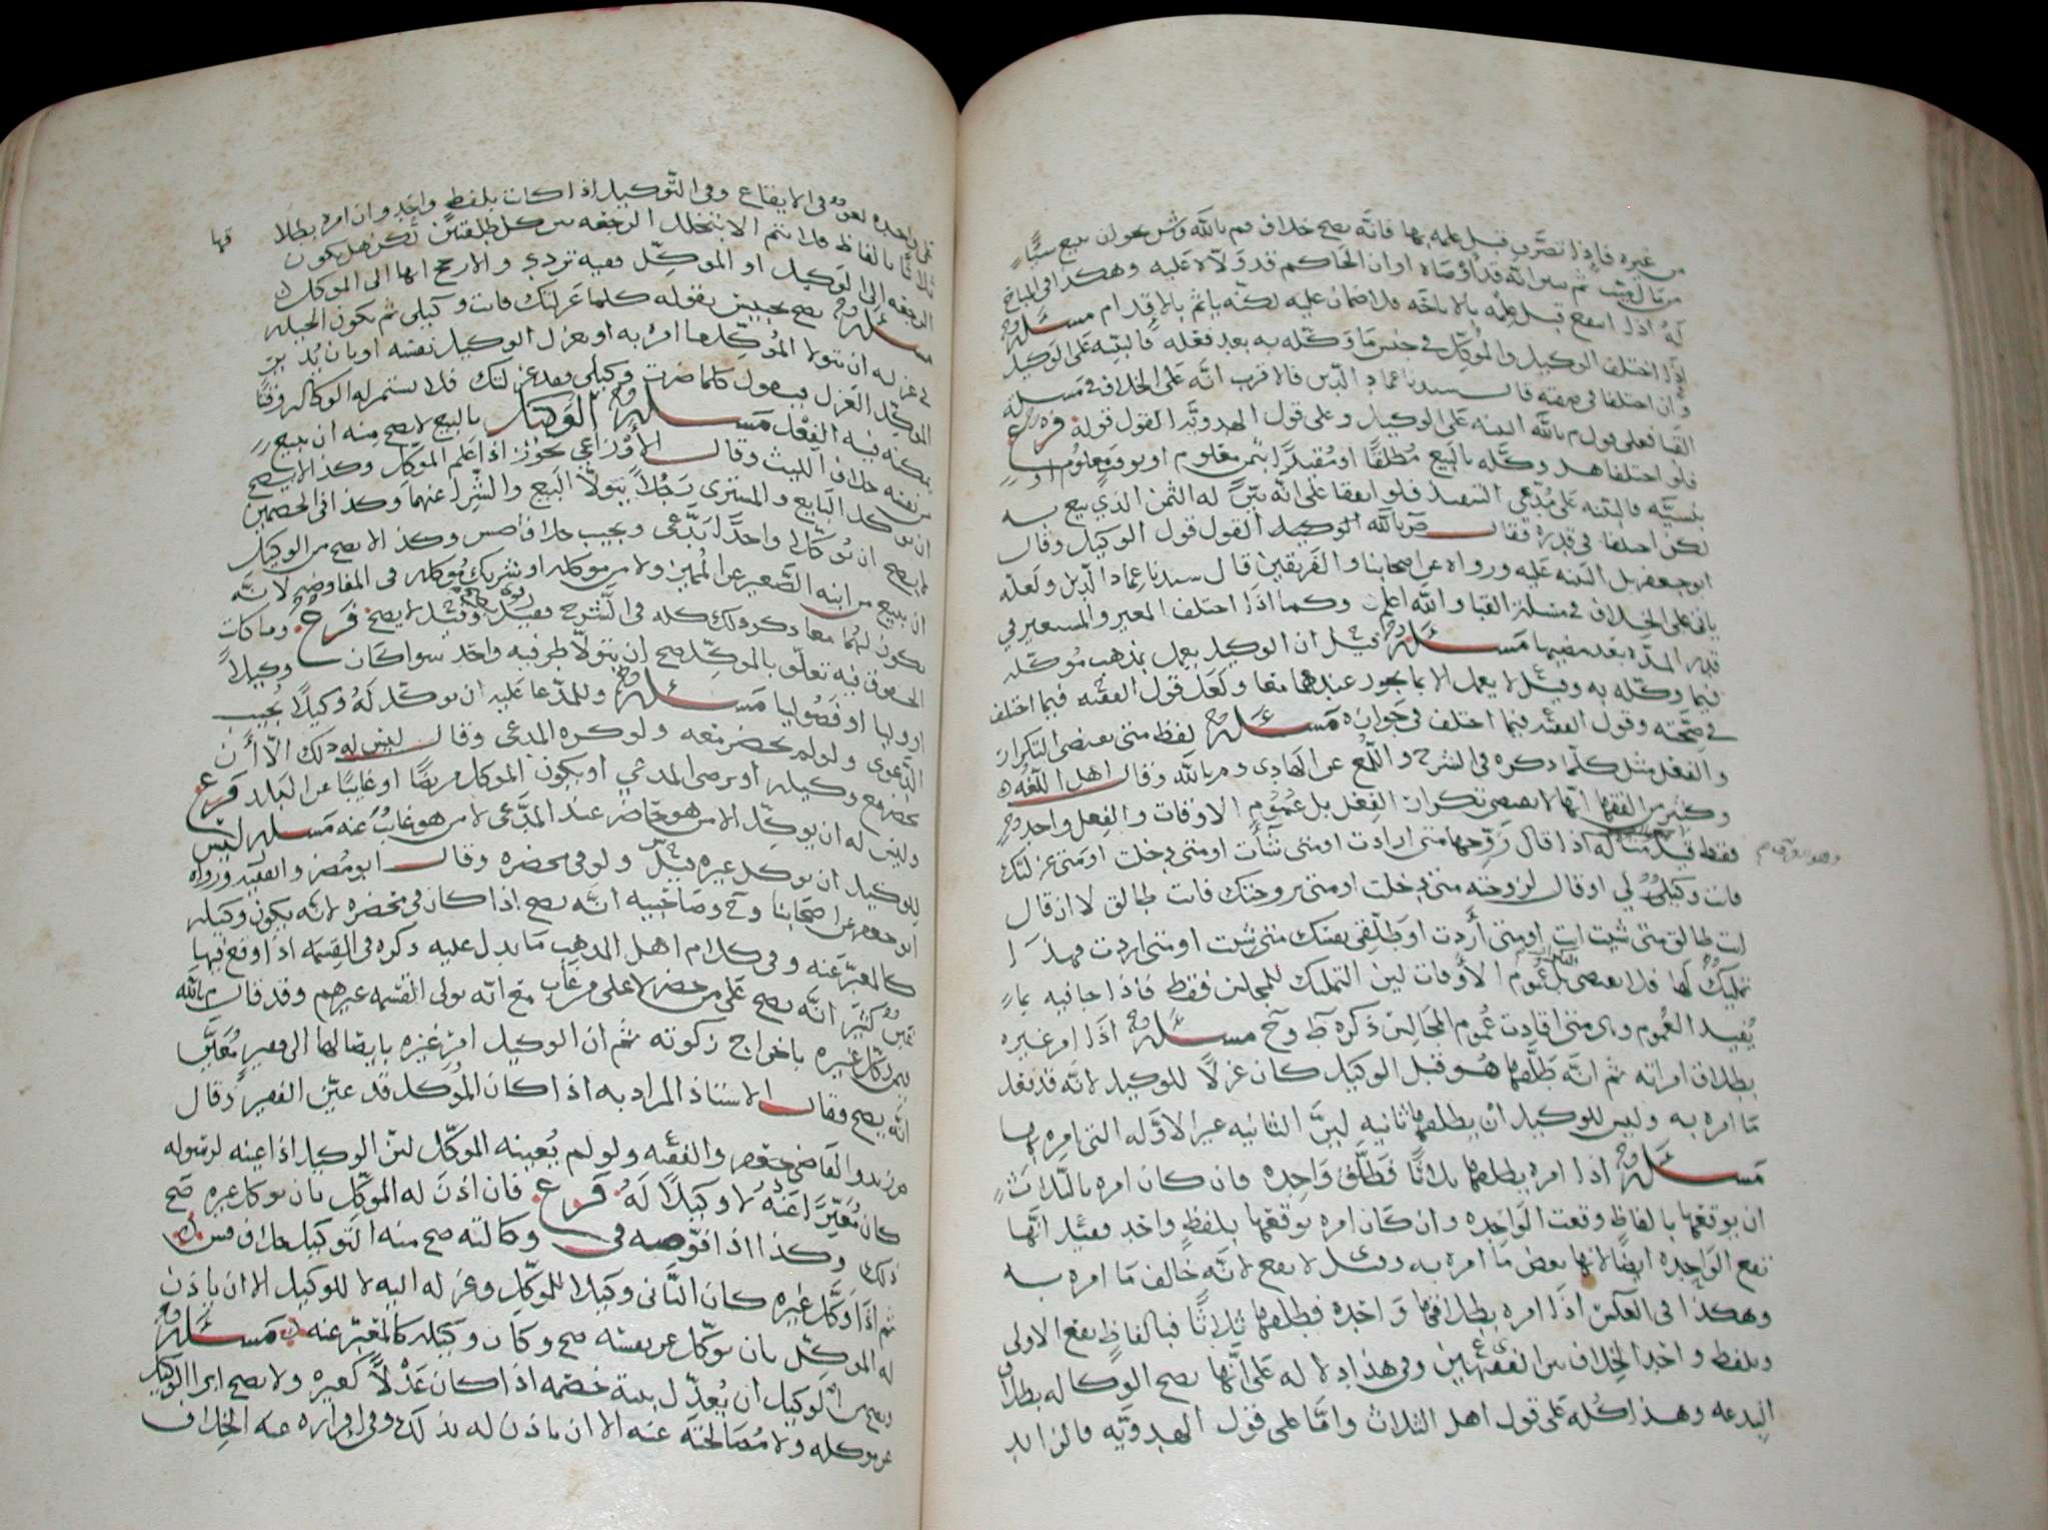 من غيره فاذا تصرف قبل علمه بها فانه يصح خلاف م بالله وش نحو ان يبيع شيئًا
من مال لغيره ثم بين انه قد اوصاه او ان الحاكم قد ولاه عليه وهكذا في المباح
له اذا انتفع قبل علمه بالاباحه فلا ضمان عليه لكنه ياثم بالاقدام مسئلة
اذا اختلف الوكيل والموكل في جنس ما وكله به بعد فعله فالبينه على الوكيل
وان اختلفا في صفته قال سيدنا عماد الدين فالاقرب انه على الخلاف في مسئلة
القبا فعلى قول م بالله البينه على الوكيل وعلى قول الهدويه القول قوله فرع
فلو اختلفا هل وكله بالبيع مطلقًا او مقيدًا بثمن معلوم او بوقت معلوم او
بنسيه فالبينه على مدعي التقييد فلو اتفقا على انه بين له الثمن الذي يبيع به
لكن اختلفا في قدره فقال م بالله الوكيل القول قول الوكيل وقال
ابو جعفر بل البينه عليه ورواه عن اصحابنا والفريقين قال سيدنا عماد الدين ولعله
ياتي على الخلاف في مسئلة القبا والله اعلم وكما اذا اختلف المعير والمستعير في
قدر المده بعد مضيها مسئلة قيل ان الوكيل يعمل بمذهب موكله
فيما وكله به وقيل لا يعمل الا بما يجوز عندهما معا ولعل قول الفقيه فيما اختلف
في صحته وقول الفقيه فيما اختلف في جوازه مسئلة لفظ متى يقتضي التكرار
والفعل مثل كلما ذكره في الشرح واللمع عن الهادي و م بالله وقال اهل اللغه
وكثير من الفقها انها لا تقتضي تكرار الفعل بل عموم الاوقات والفعل واحد
فقط قيل مثاله اذا قال زوجها متى ارادت او متى شأت او متى دخلت او متى عزلتك
فانت وكيل لي او قال لزوجته متى دخلت او متى تزوجتك فانت طالق لا ان قال
انت طالق متى شيت او متى أردت او طلقي نفسك متى شيت او متى اردت فهذا
تمليك لها فلا يقتضي عموم الأوقات لين التمليك للمجلس فقط فاذا جا فيه بما
يفيد العموم وهي متى افادت عموم المجالس ذكره ط وح مسئلة اذا امر غيره
بطلاق امراته ثم انه طلقها هو قبل الوكيل كان عزلًا للوكيل لانه قد فعل
ما امره به وليس للوكيل ان يطلقها ثانيه لين الثانيه غير الاوله التي امره بها
مسئلة اذا امره يطلقها ثلاثًا فطلق واحده فان كان امره بالثلاث
ان يوقعها بالفاظ وقعت الواحده وان كان امره يوقعها بلفظ واحد فقيل انها
تقع الواحده ايضًا لانها بعض ما امره به وقيل لا يقع لانه خالف ما امره به
وهكذا في العكس اذا امره بطلاقها واحده فطلقها ثلاثًا فبالفاظ يقع الاولى
وبلفظ واحد الخلاف بين الفقيهين وفي هذا دلاله على انها تصح الوكاله بطلاق
البدعه وهذا كله على قول اهل الثلاث واما على قول الهدويه فالزايد
على واحده لغو في الايقاع وفي التوكيل اذا كانت بلفظ واحد وان امره بطلا
ثلاثًا بالفاظ فلا يتم الا بتخلل الرجعه بين كل طلقتين لكن هل يكون
الرجعه الى الوكيل او الموكل فيه تردد والارجح انها الى الموكل
مسئلة يصح تحبيس بقوله كلما عزلتك فانت وكيلي ثم يكون الحيله
في عزله ان يتولا الموكل ما امر به او يعزل الوكيل نفسه او بان يدير
الموكل العزل فيقول كلما صرت وكيلي فقد عزلتك فلا يستمر له الوكاله وقتًا
يمكنه فيه الفعل مسئلة الوكيل بالبيع لا يصح منه ان يبيع
من نفسه خلاف الليث وقال الأوزاعي يجوز اذا اعلم الموكل وكذا لا يصح
ان يوكل البايع والمشتري رجلًا يتولا البيع والشرا عنهما وكذا في الخصمين
لا يصح ان يوكلا واحدًا يدعي ويجيب خلاف وكذا لا يصح من الوكيل
ان يبيع من ابنه الصغير غير المميز ولا من موكله او شريك موكله في المفاوضه لانه
يكون لهما معا ذكر ذلك كله في الشرح وقيل لا يصح فرع وما كانت
الحقوق فيه تتعلق بالموكل صح ان يتولا طرفيه واحد سوا كان وكيلًا
او وليا او فضوليا مسئلة وللمدعا عليه ان يوكل له وكيلًا يجيب
الدعوى ولو لم يحضر معه ولو كره المدعي وقال ليس له ذلك الا أن
يحضر مع وكيله او يرضى المدعي او يكون الموكل مريضًا او غايبًا عن البلد فرع
وليس له ان يوكل الا من هو حاضر عند المدعي لا من هو غايب عنه مسئلة ليس
للوكيل ان يوكل غيره ولو في محضره وقال ابو مضر والفقيه ورواه
ابو جعفر عن اصحابنا وح وصاحبيه انه يصح اذا كان في محضره لانه يكون وكيله
كالمعبر عنه وفي كلام اهل المذهب ما يدل عليه ذكره في القسمه اذا وقع فيها
غبن كثير انه يصح على من حضر لا على من غاب مع انه تولى القسمه غيرهم وقد قال م بالله
فيمن وكل غيره باخراج زكوته ثم ان الوكيل امر غيره بايصالها الى فقير معين
انه يصح فقال الاستاذ المراد به اذا كان الموكل قد عين الفقير وقال
القاضي جعفر والفقيه ولو لم يعينه الموكل لين الوكيل اذا عينه لرسوله
كان معبرًا عنه لا وكيلًا له فرع فان اذن له الموكل بان يوكل غيره صح
ذلك وكذا اذا فوضه في وكالته صح منه التوكيل خلاف
ثم اذا وكل غيره كان الثاني وكيلا للموكل وعزله اليه لا للوكيل الا ان ياذن
له الموكل بان يوكل عن نفسه صح وكان وكيله كالمعبر عنه مسئلة
ويصح من الوكيل ان يعدل بينة خصمه اذا كان عدلًا كغيره ولا يصح ابرا الوكيل
عن موكله ولا مصالحته عنه الا ان ياذن له بذلك وفي اقراره عنه الخلاف